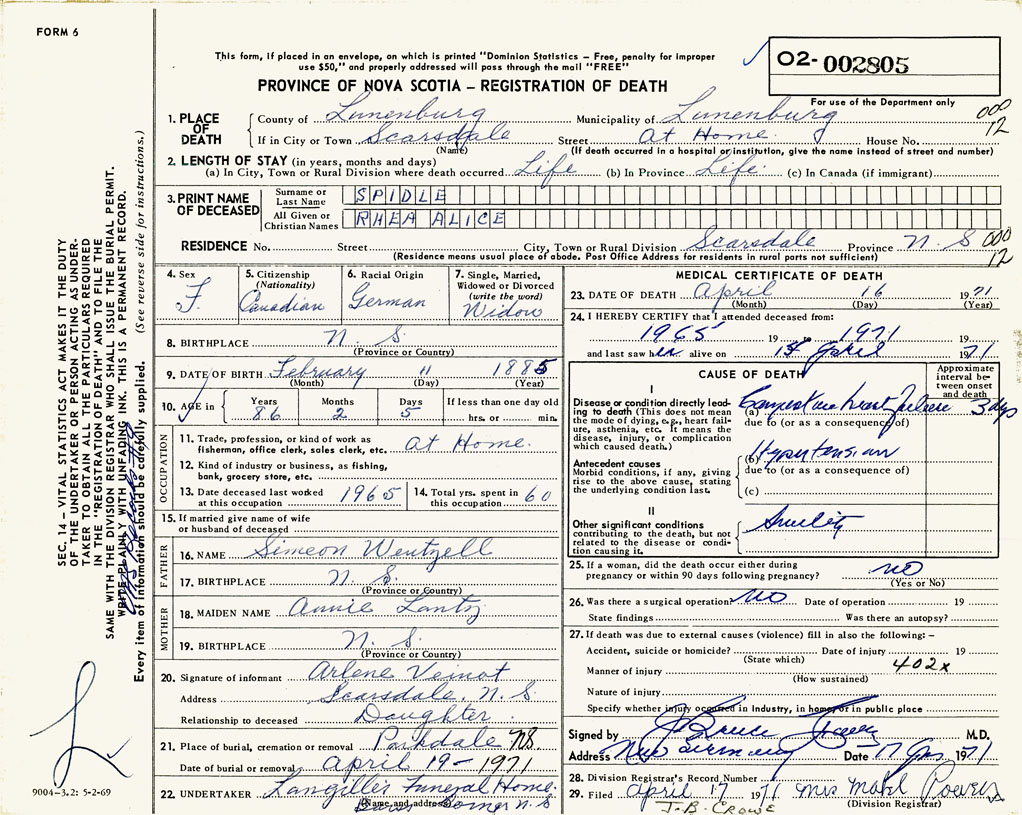 FORM 6
This form, if placed in an envelope, on which is printed "Dominion Statistics – Free, penalty for improper
use $50," and properly addressed will pass through the mail "FREE"
PROVINCE OF NOVA SCOTIA – REGISTRATION OF DEATH
02-002805
For use of the Department only
000
12
1. PLACE OF DEATH
County of Lunenburg Municipality of Lunenburg
If in City or Town Scarsdale Street At Home. House No.
(Name) (If death occurred in a hospital or institution, give the name instead of street and number)
2. LENGTH OF STAY (in years, months and days)
(a) In City, Town or Rural Division where death occurred Life (b) In Province Life (c) In Canada (if immigrant)
3. PRINT NAME OF DECEASED
Surname or Last Name SPIDLE
All Given or Christian Names RHEA ALICE
RESIDENCE No. Street City, Town or Rural Division Scarsdale Province N. S 000
(Residence means usual place of abode. Post Office Address for residents in rural parts not sufficient) 12
4. Sex F.
5. Citizenship (Nationality) Canadian
6. Racial Origin German
7. Single, Married, Widowed or Divorced (write the word) Widow
8. BIRTHPLACE N. S.
(Province or Country)
9. DATE OF BIRTH February 11 1885
(Month) (Day) (Year)
10. AGE in Years 86 Months 2 Days 5 If less than one day old
hrs. or min.
OCCUPATION
11. Trade, profession, or kind of work as fisherman, office clerk, sales clerk, etc. At Home.
12. Kind of industry or business, as fishing, bank, grocery store, etc.
13. Date deceased last worked at this occupation 1965
14. Total yrs. spent in this occupation 60
15. If married give name of wife or husband of deceased
FATHER
16. NAME Simeon Wentzell
17. BIRTHPLACE N. S.
(Province or Country)
MOTHER
18. MAIDEN NAME Annie Lantz
19. BIRTHPLACE N. S.
(Province or Country)
20. Signature of informant Arlene Veinot
Address Scarsdale, N. S.
Relationship to deceased Daughter.
21. Place of burial, cremation or removal Parkdale NS.
Date of burial or removal April 19 - 1971
22. UNDERTAKER Langilles Funeral Home.
(Name and address) N. S
MEDICAL CERTIFICATE OF DEATH
23. DATE OF DEATH April 16 1971
(Month) (Day) (Year)
24. I HEREBY CERTIFY that I attended deceased from:
1965 19 to 1971 19
and last saw her alive on 15 April 1971
CAUSE OF DEATH
Approximate interval between onset and death
I
Disease or condition directly leading to death (This does not mean the mode of dying, e.g., heart failure, asthenia, etc. It means the disease, injury, or complication which caused death.)
(a) Congestive heart failure 3 days
due to (or as a consequence of)
Antecedent causes
Morbid conditions, if any, giving rise to the above cause, stating the underlying condition last.
(b) Hypertension
due to (or as a consequence of)
(c)
II
Other significant conditions contributing to the death, but not related to the disease or condition causing it.
Senility
25. If a woman, did the death occur either during pregnancy or within 90 days following pregnancy? NO
(Yes or No)
26. Was there a surgical operation? NO Date of operation 19
State findings Was there an autopsy?
27. If death was due to external causes (violence) fill in also the following: –
Accident, suicide or homicide? Date of injury 19
(State which) 402x
Manner of injury
(How sustained)
Nature of injury
Specify whether injury occurred in industry, in home, or in public place
Signed by J Bruce M.D.
Address New Germany Date 17 Apr 1971
28. Division Registrar's Record Number
29. Filed April 17 1971 Mrs Mabel Powers
(Division Registrar)
J.B. CROWE
SEC. 14 – VITAL STATISTICS ACT MAKES IT THE DUTY
OF THE UNDERTAKER OR PERSON ACTING AS UNDER-
TAKER TO OBTAIN ALL THE PARTICULARS REQUIRED
IN THE "REGISTRATION OF DEATH" AND TO FILE THE
SAME WITH THE DIVISION REGISTRAR WHO SHALL ISSUE THE BURIAL PERMIT.
WRITE PLAINLY WITH UNFADING INK. THIS IS A PERMANENT RECORD.
Every item of information should be carefully supplied. (See reverse side for instructions.)
9004-3.2: 5-2-69